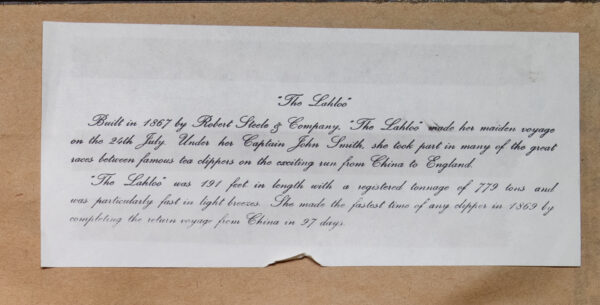 "The Lahloo"
Built in 1867 by Robert Steele & Company, "The Lahloo" made her maiden voyage
on the 24th July. Under her Captain John Smith, she took part in many of the great
races between famous tea clippers on the exciting run from China to England.
"The Lahloo" was 191 feet in length with a registered tonnage of 779 tons and
was particularly fast in light breezes. She made the fastest time of any clipper in 1869 by
completing the return voyage from China in 97 days.